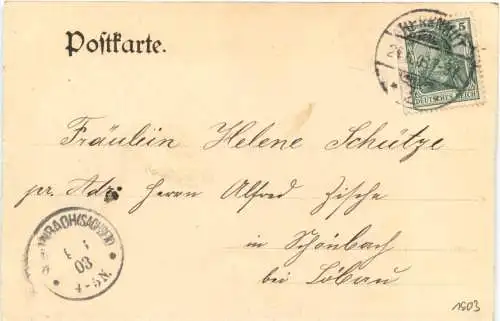 Postkarte.
5
DEUTSCHES REICH
Fräulein Helene Schütze
pr. Adr: Herrn Alfred Zische
in Schönbach
bei Löbau
(SACHSEN)
03
4-5N.
1903